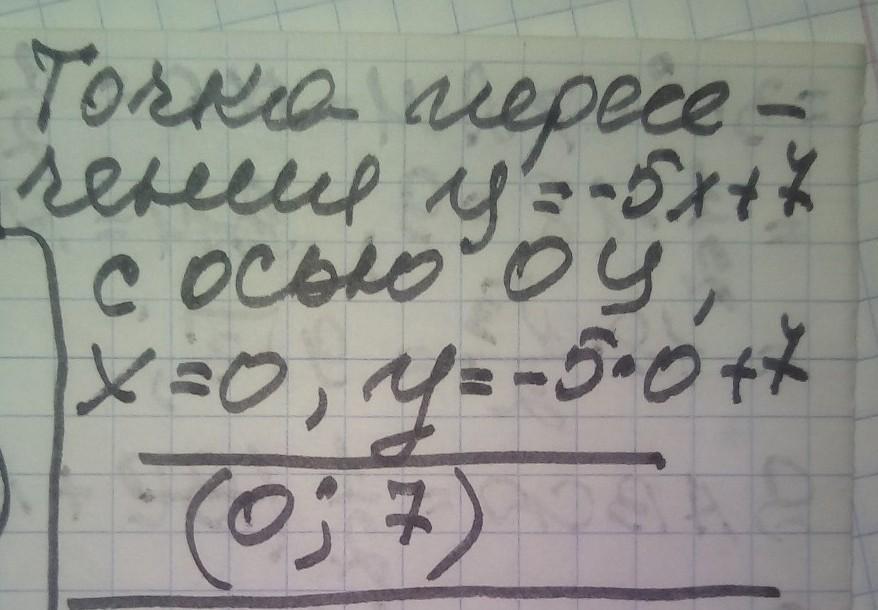 Точка пересе-
чения y=-5x+7
с осью OY,
x=0, y=-5·0+7
(0; 7)